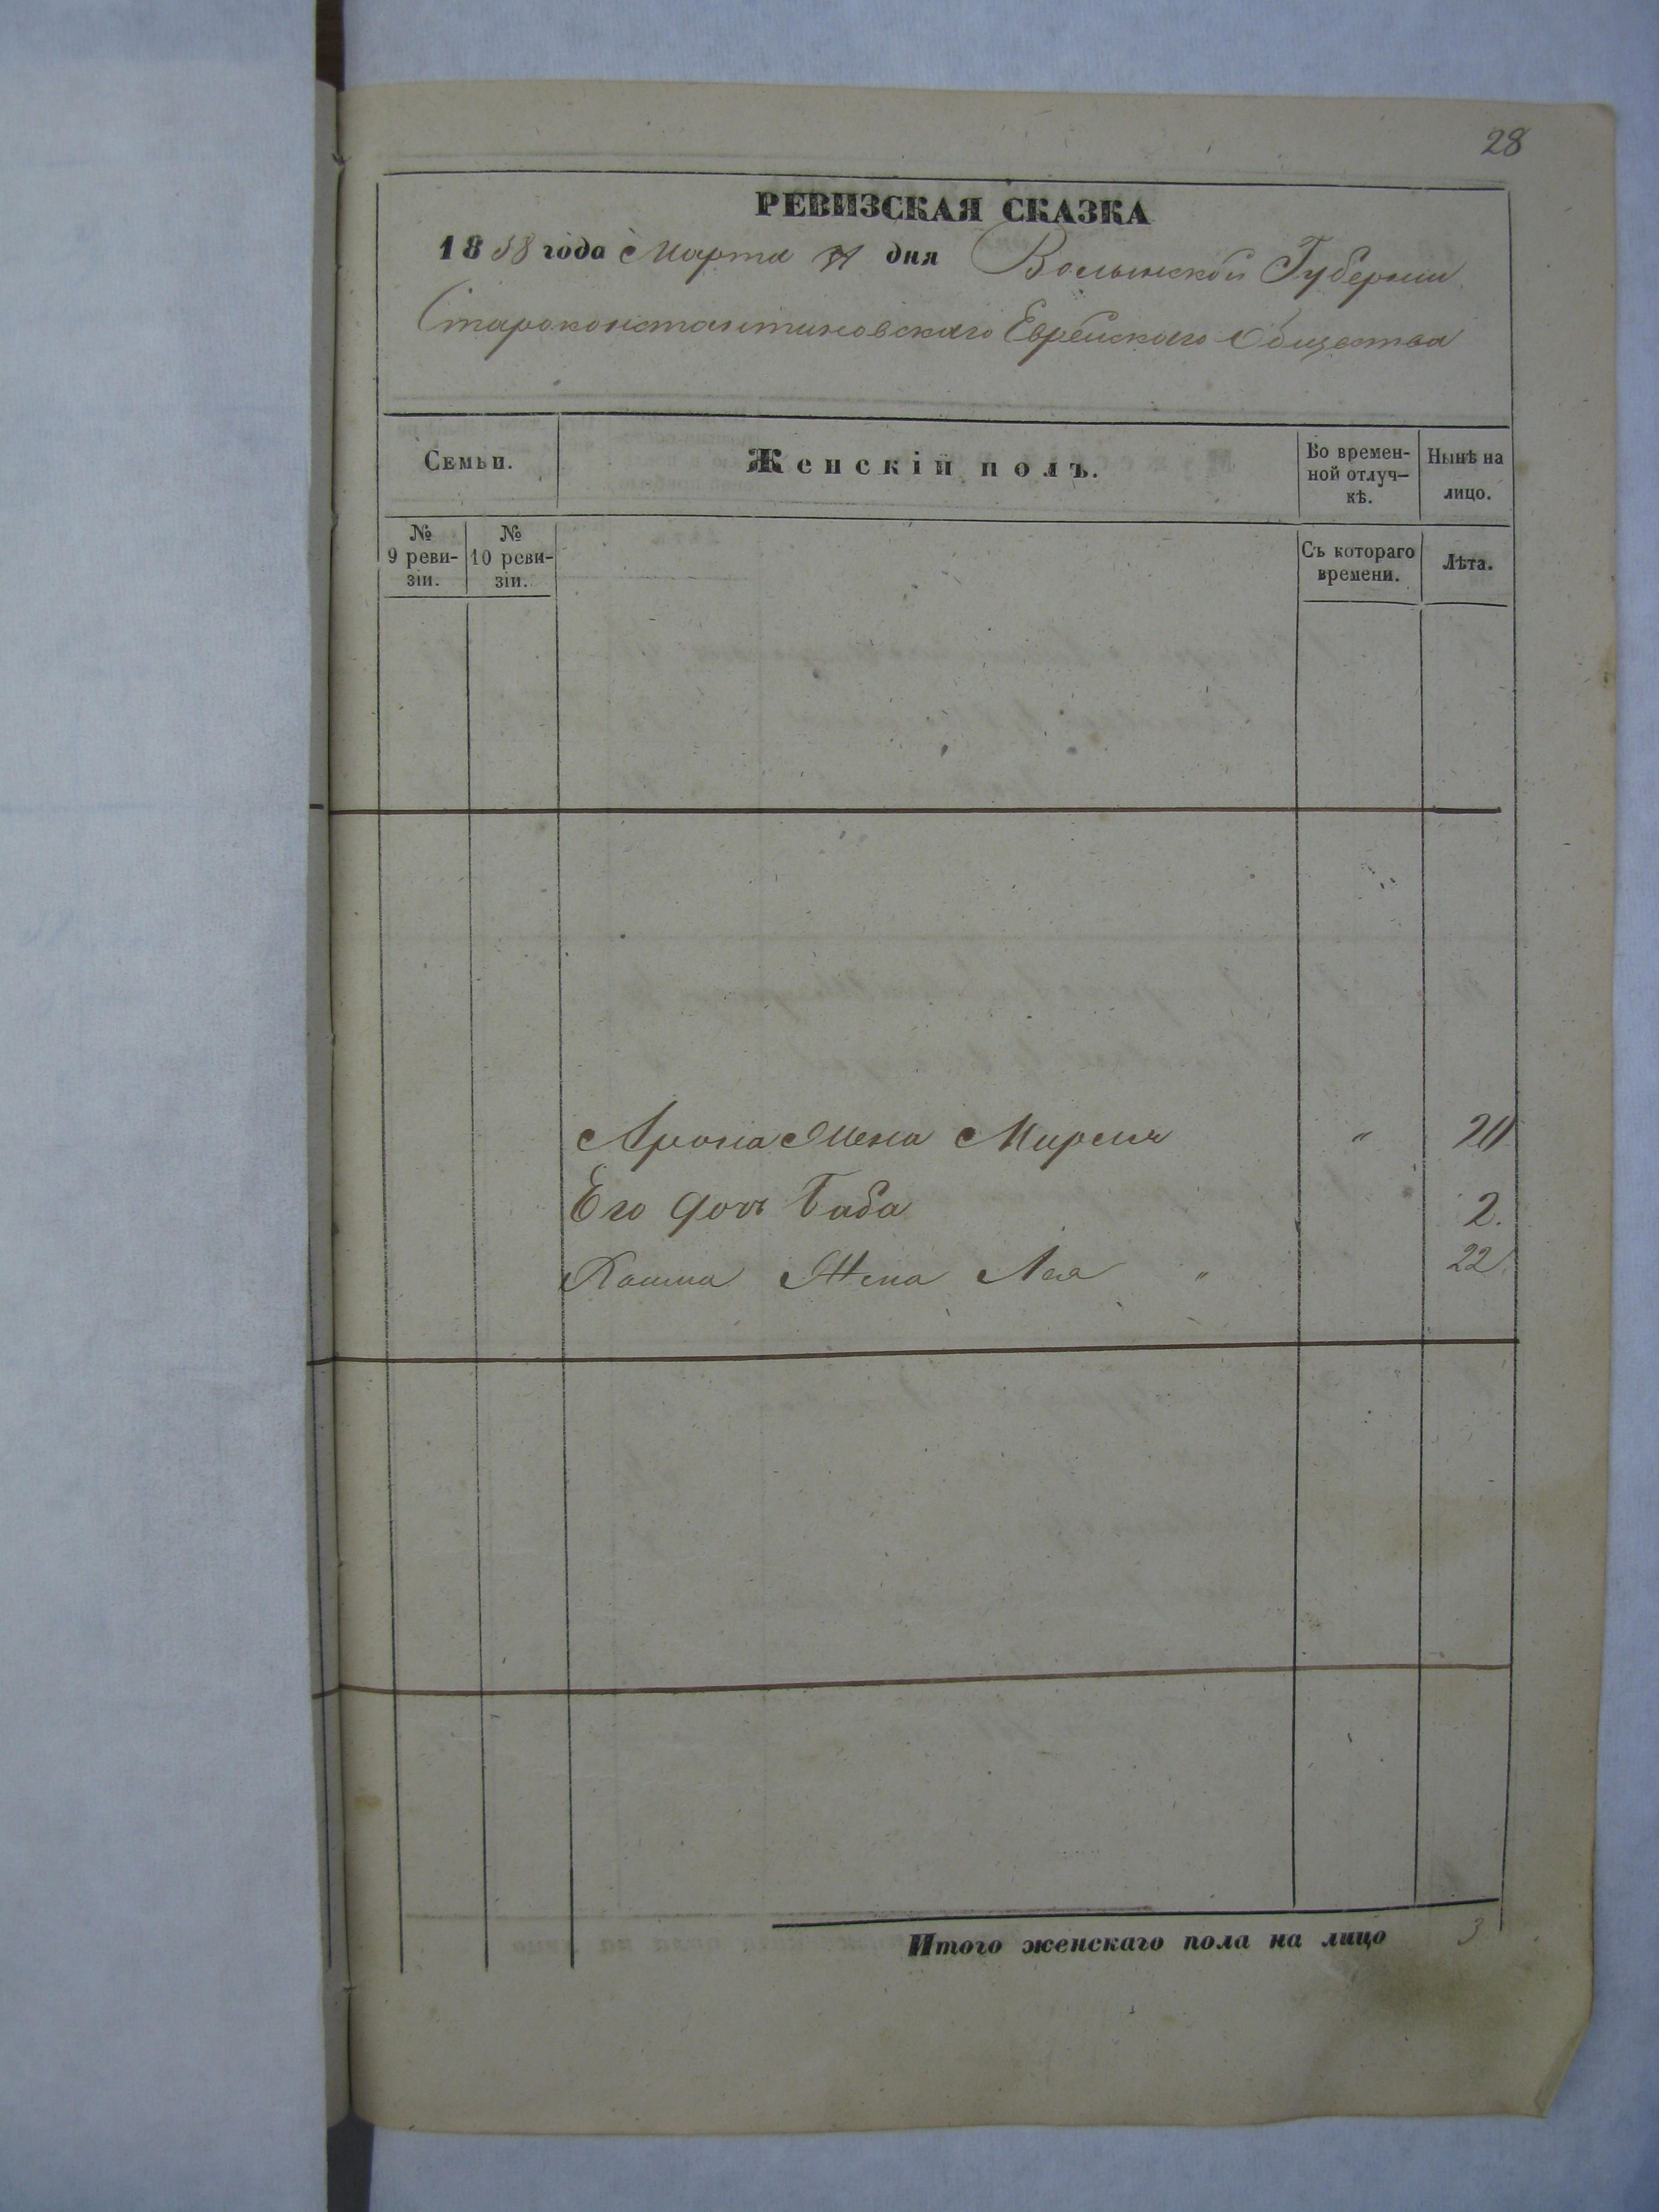 28
РЕВИЗСКАЯ СКАЗКА
1858 года Марта дня Волынской Губернии
Староконстантиновскаго Еврейскаго Общества
Семьи.
Женскій полъ.
Во времен-
ной отлуч-
кѣ.
Нынѣ на
лицо.
№
9 реви-
зіи.
№
10 реви-
зіи.
Съ котораго
времени.
Лѣта.
Арона Жена Мирля " 20
Его дочь Баба 2.
Жена Лея " 22
Итого женскаго пола на лицо 3